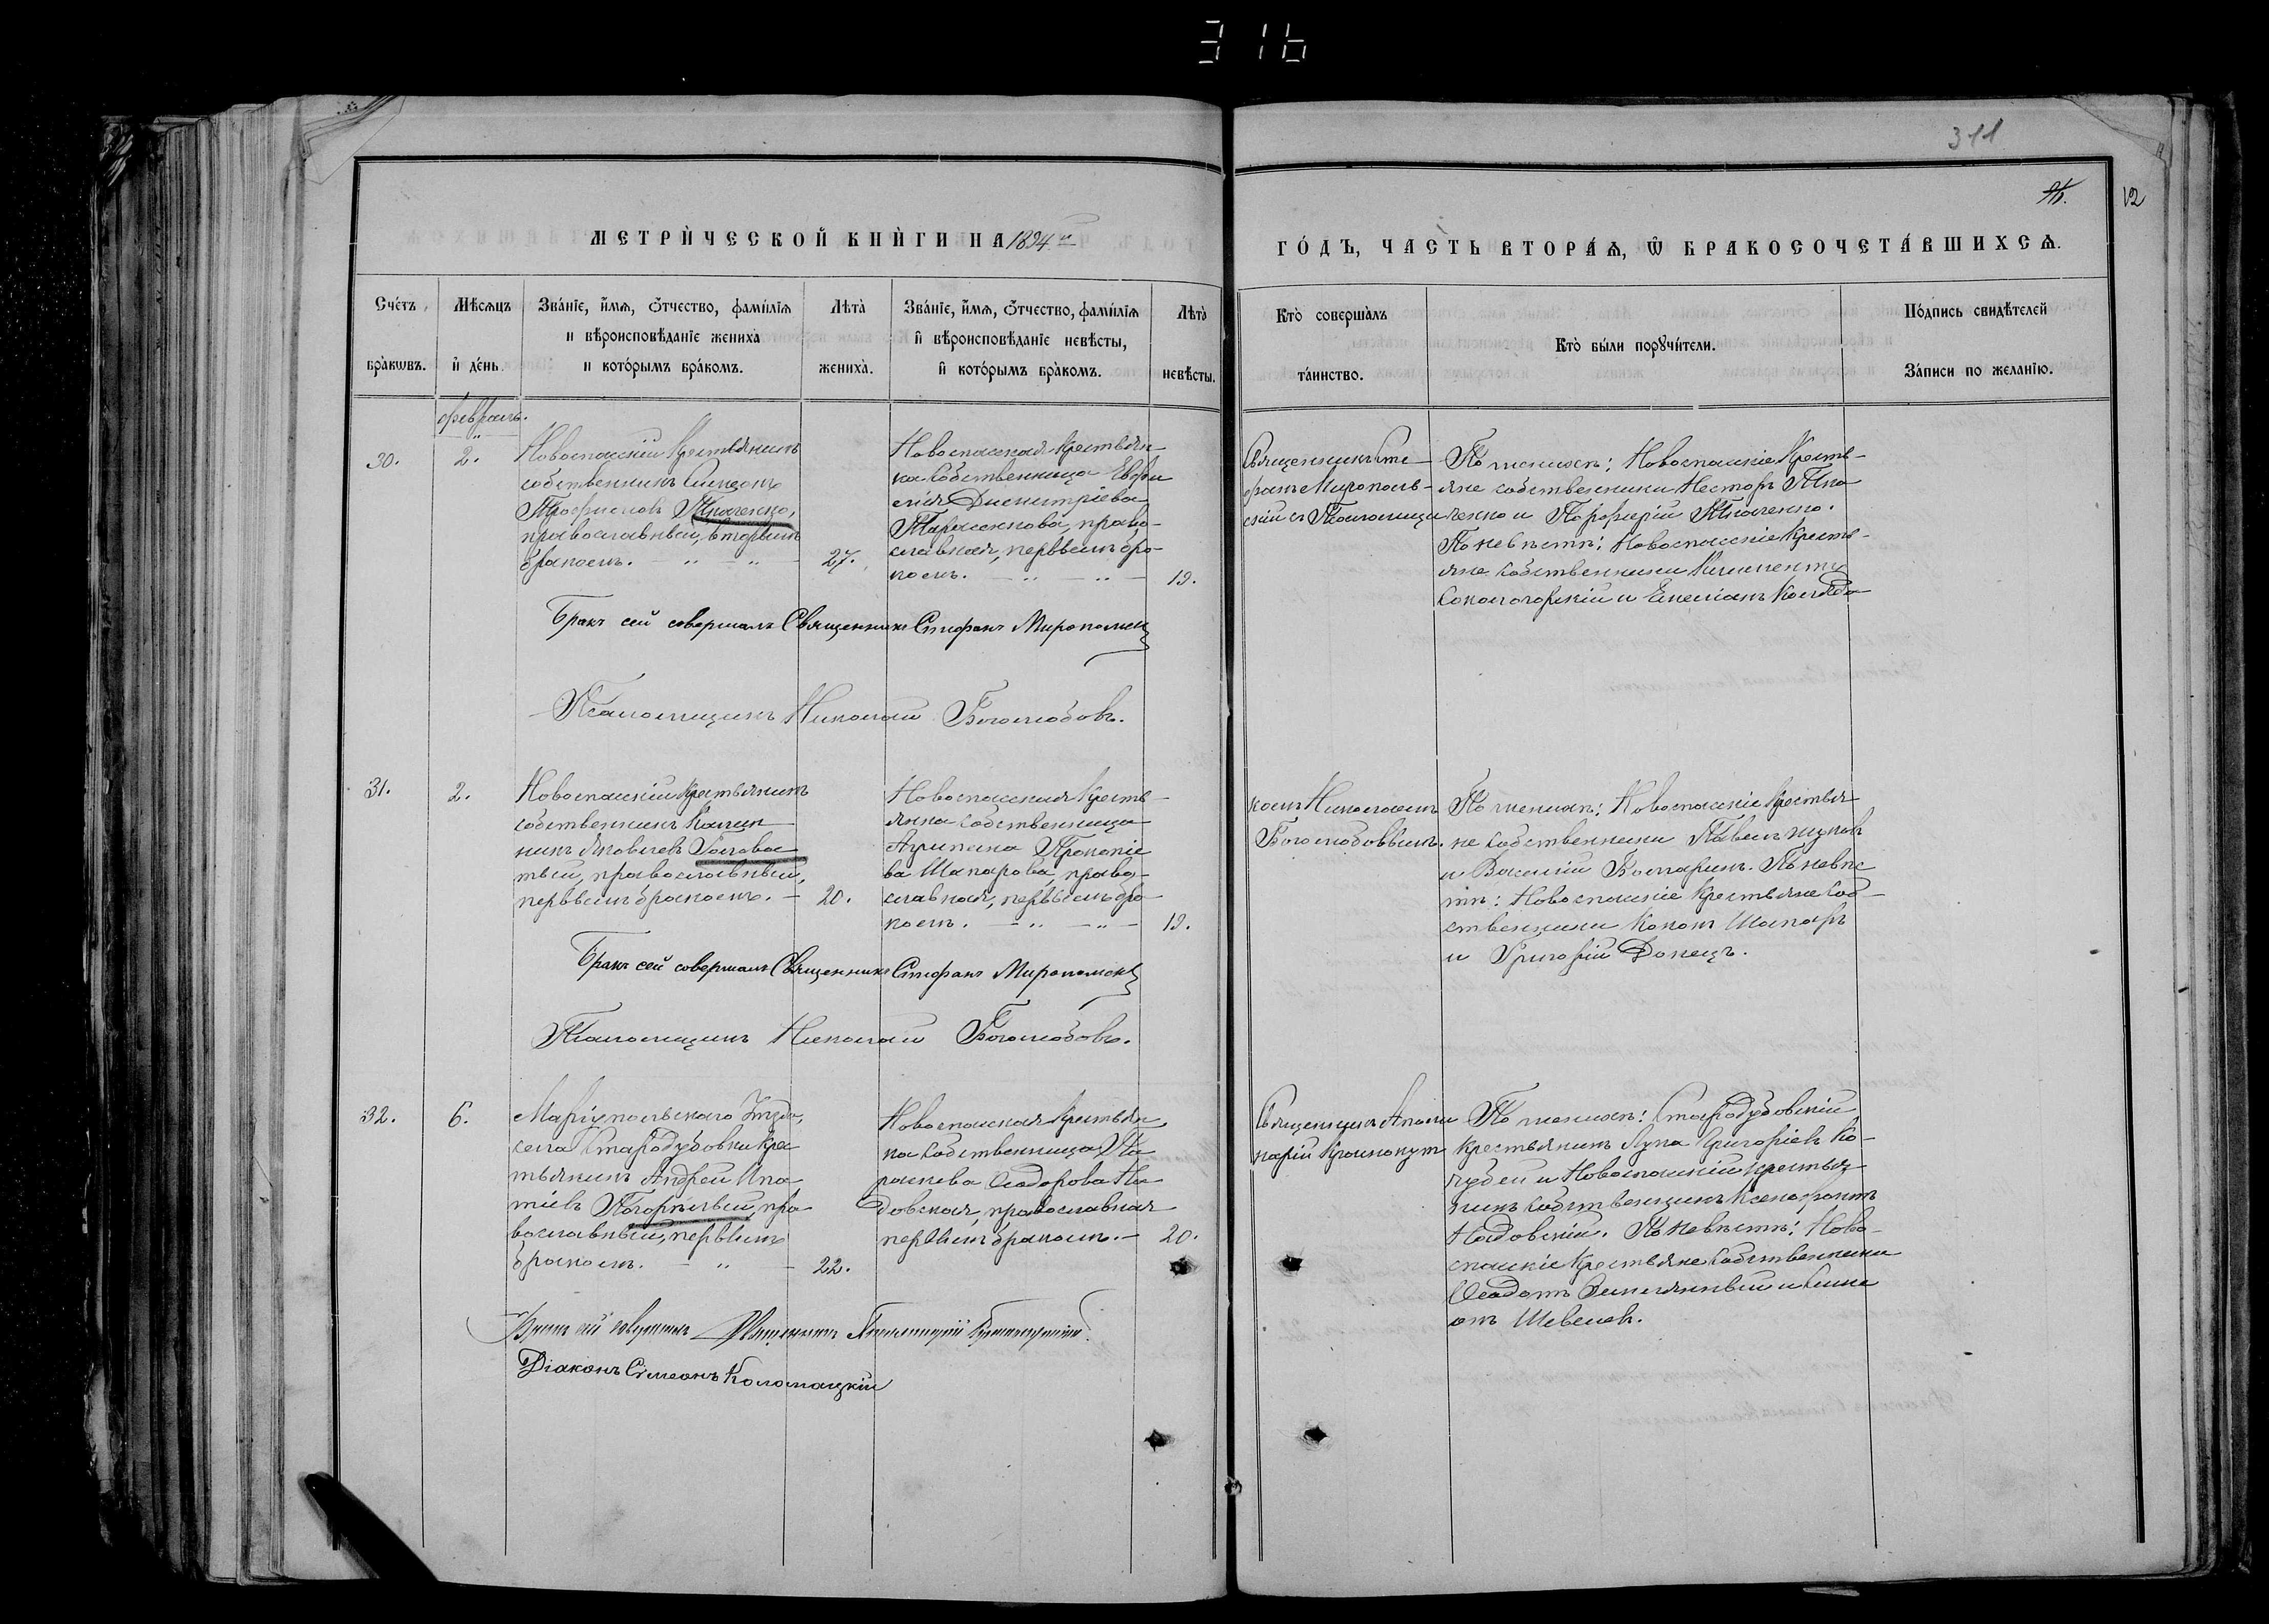 316
311
12
МЕТРИЧЕСКОЙ КНИГИ НА 1894 й
ГОДЪ, ЧАСТЬ ВТОРАѦ, Ѿ БРАКОСОЧЕТАВШИХСѦ.
Счетъ браковъ.
Мѣсѧцъ и день.
Званіе, имѧ, отчество, фамиліѧ
и вѣроисповѣданіе жениха
и которымъ бракомъ.
Лѣта
жениха.
Званіе, имѧ, отчество, фамиліѧ
и вѣроисповѣданіе невѣсты,
и которымъ бракомъ.
Лѣта
невѣсты.
Кто совершалъ
таинство.
Кто были порꙋчители.
Подпись свидѣтелей
Записи по желанію.
февраль.
30.
2.
Новоспаскій Крестьянинъ
собственникъ Симеонъ
Трофимовъ Ткаченко,
православный, вторымъ
бракомъ.
27.
Новоспаская Крестьян-
ка собственница Евфи
мія Димитріева
Тарасенкова, право-
славная, первымъ бра-
комъ.
19.
Священникъ Сте
фанъ Мирополь-
скій съ Псаломщи
По женихѣ: Новоспаскіе Кресть-
яне собственники Несторъ Тка
ченко и Порфирій Ткаченко.
По невѣстѣ: Новоспаскіе Кресть-
яне собственники Климентъ
Сокологорскій и Емеліанъ Коляда
Бракъ сей совершалъ Священникъ Стефанъ Миропольск
Псаломщикъ Николай Боголюбовъ.
31.
2.
Новоспаскій Крестьянинъ
собственникъ Калин
никъ Яковлевъ Головат
тый, православный,
первымъ бракомъ.
20.
Новоспаская Кресть-
янка собственница
Агрипина Прокопіе
ва Шапарова, право-
славная, первымъ бра-
комъ.
19.
комъ Николаемъ
Боголюбовымъ.
По женихѣ: Новоспаскіе Крестья
не собственники Павелъ Жуковъ
и Василій Болгаринъ. По невѣс
тѣ: Новоспаскіе Крестьяне соб-
ственники Кононъ Шапаръ
и Григорій Донецъ.
Бракъ сей совершалъ Священникъ Стефанъ Миропольск
Псаломщикъ Николай Боголюбовъ.
32.
6.
Маріупольскаго Уѣзда,
села Стародубовки Крес
тьянинъ Андрей Ипа-
тіевъ Погорѣлый, пра-
вославный, первымъ
бракомъ.
22.
Новоспаская Крестьян
ка собственница Па
раскева Ѳеодорова На
довская, православная
первымъ бракомъ.
20.
Священникъ Аполи
нарій Краснокут
По женихѣ: Стародубовскій
крестьянинъ Лука Григоріевъ Ко-
чубей и Новоспаскій крестья-
нинъ собственникъ Ксенофонтъ
Надовскій. По невѣстѣ: Ново-
спаскіе Крестьяне собственники
Ѳеодотъ и Симе
онъ Шевелевъ.
Бракъ сей совершалъ Священникъ Аполлинарій Краснокутскій.
Діаконъ Сѵмеонъ Коломацкій